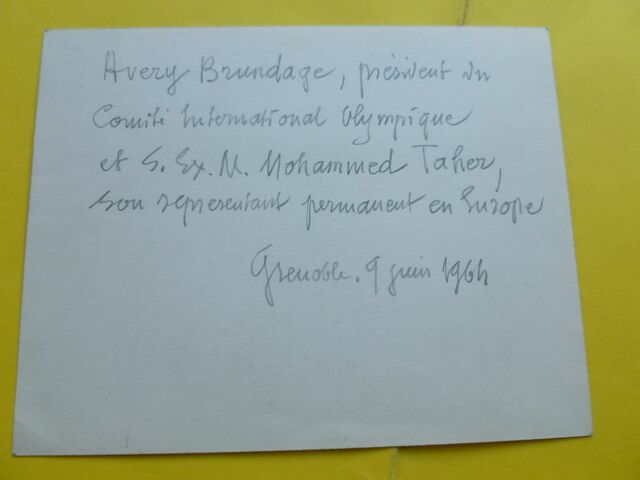 Avery Brundage, président du
Comité International Olympique
et S. Ex. M. Mohammed Taher,
son representant permanent en Europe
Grenoble. 9 juin 1964